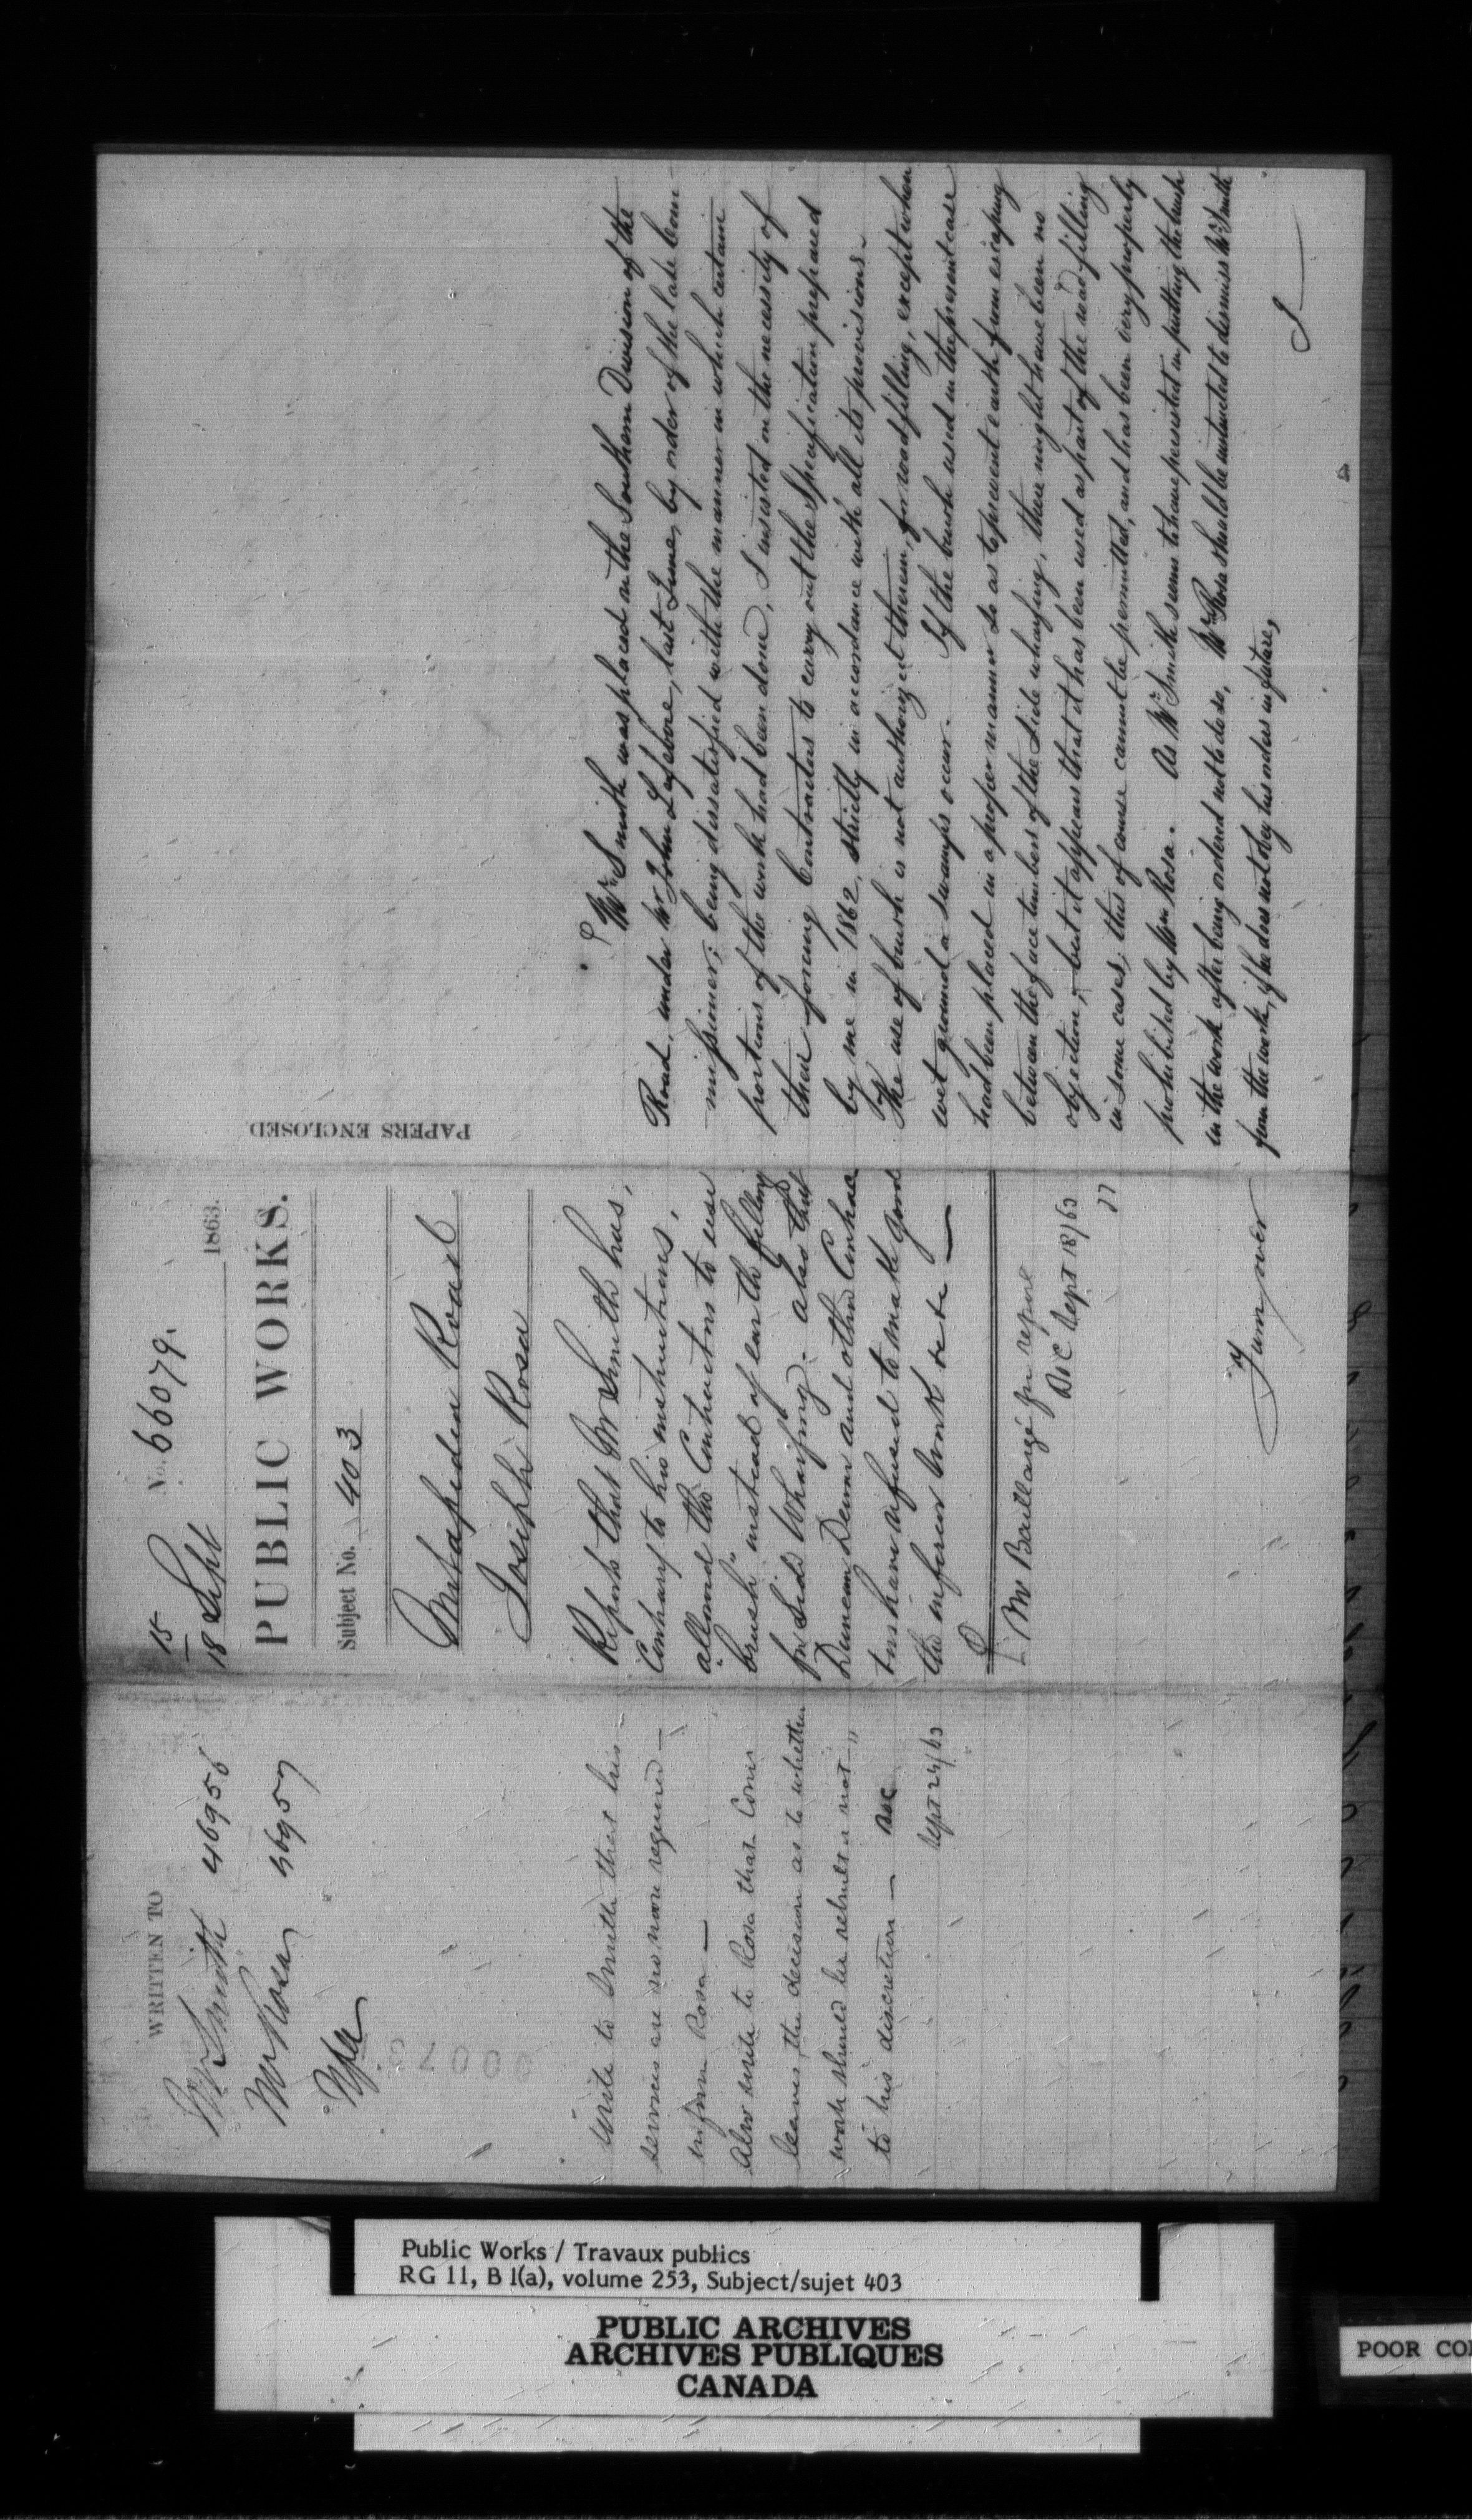 WRITTEN TO
Mr Smith 46956
Mr Rosa 46957
Write to Smith that his
services are no more required —
inform Rosa —
Also write to Rosa that Comr
leaves the decision as to whether
work should be rebuilt or not
to his discretion —
Sept 24/63
15
18 Sept
No. 66079.
1863.
PUBLIC WORKS.
Subject No. 403
Metapedia Road
Joseph Rosa
Reports that Mr Smith has,
Contrary to his instructions,
allowed the Contractors to use
"brush" instead of earth filling
for Side Wharfing - also that
Duncan and other Contrac
tors have refused to make good
the inferior work &c &c —
Mr Baillargé for report
Sept 18/63
Turn over
PAPERS ENCLOSED
Mr Smith was placed on the Southern Division of the
Road, under Mr John Lefebvre, last June, by order of the late Com-
missioner; being dissatisfied with the manner in which certain
portions of the work had been done, I insisted on the necessity of
their forcing Contractors to carry out the Specification prepared
by me in 1862, strictly in accordance with all its provisions.
The use of brush is not authorized therein, for road filling, except when
wet ground or swamps occur. If the brush used in the present case
had been placed in a proper manner so as to prevent earth from escaping
between the face timbers of the side wharfing, there might have been no
objection, but it appears that it has been used as part of the road filling
in some cases; this of course cannot be permitted, and has been very properly
prohibited by Mr Rosa. As Mr Smith seems to have persisted in putting the brush
in the work after being ordered not to do so, Mr Rosa should be instructed to dismiss Mr Smith
from the work, if he does not obey his orders in future,
Public Works / Travaux publics
RG 11, B 1(a), volume 253, Subject/sujet 403
PUBLIC ARCHIVES
ARCHIVES PUBLIQUES
CANADA
POOR CO